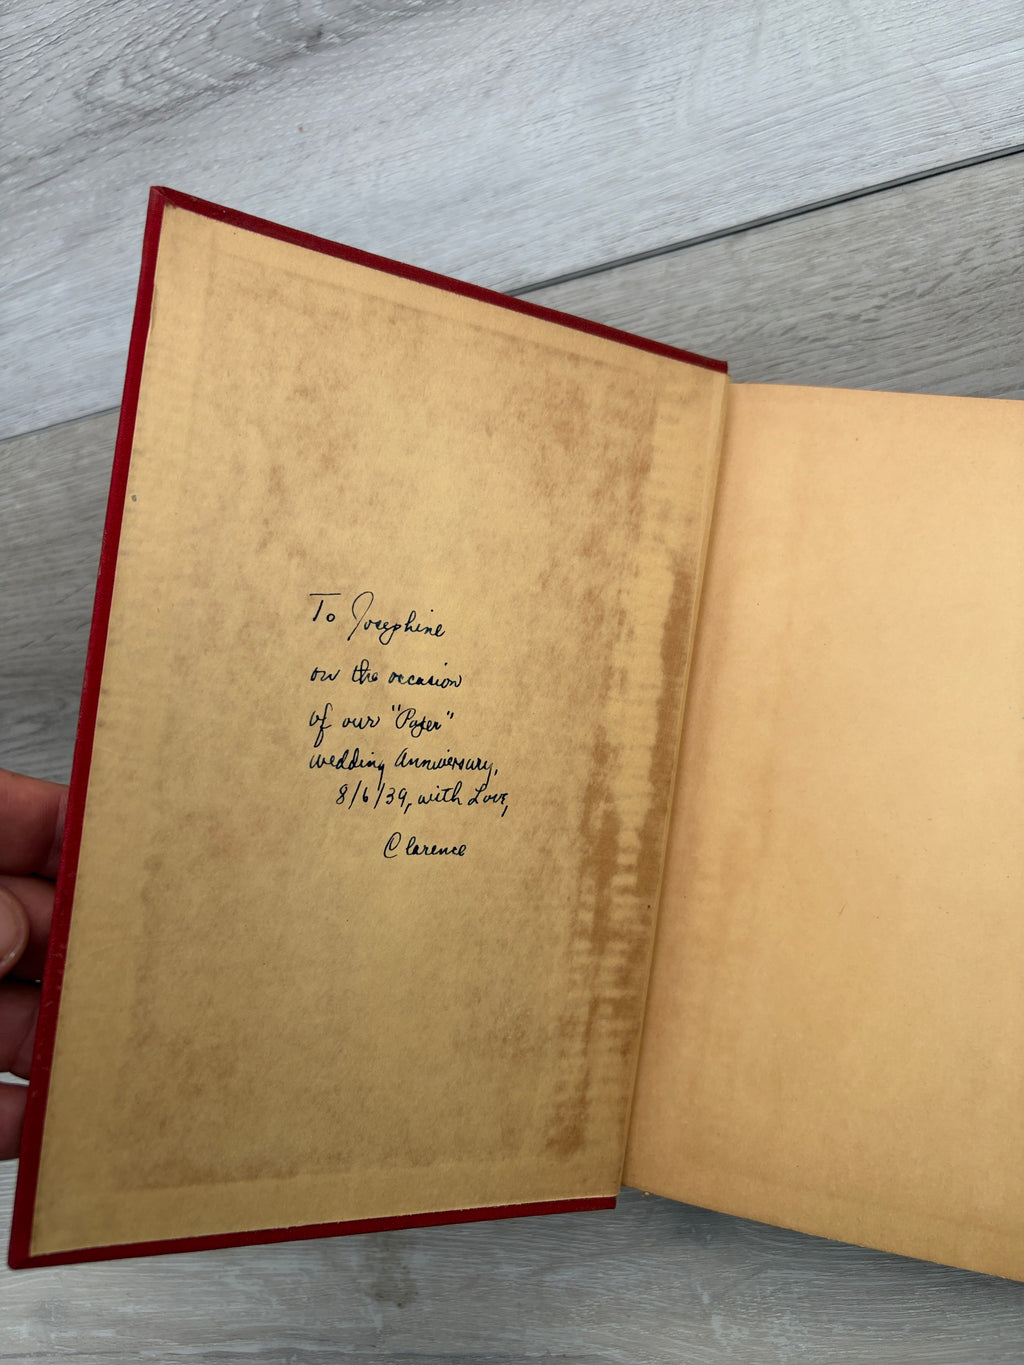 To Josephine
on the occasion
of our "Paper"
wedding Anniversary,
8/6/39, with Love,
Clarence